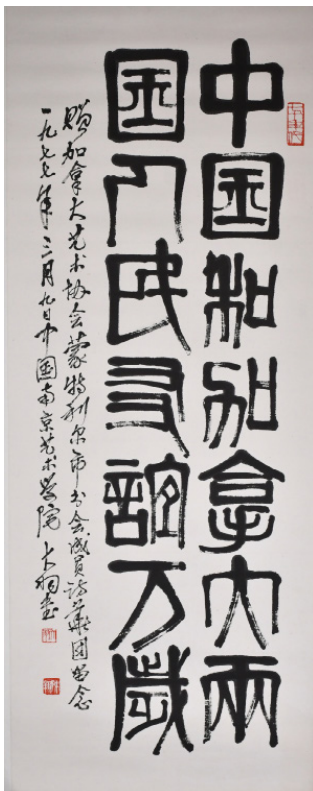 中国和加拿大兩
国人民友誼万歲
赠加拿大艺术协会蒙特利尔市分会成员访华团留念
一九七七年三月九日中国南京艺术学院 大羽书